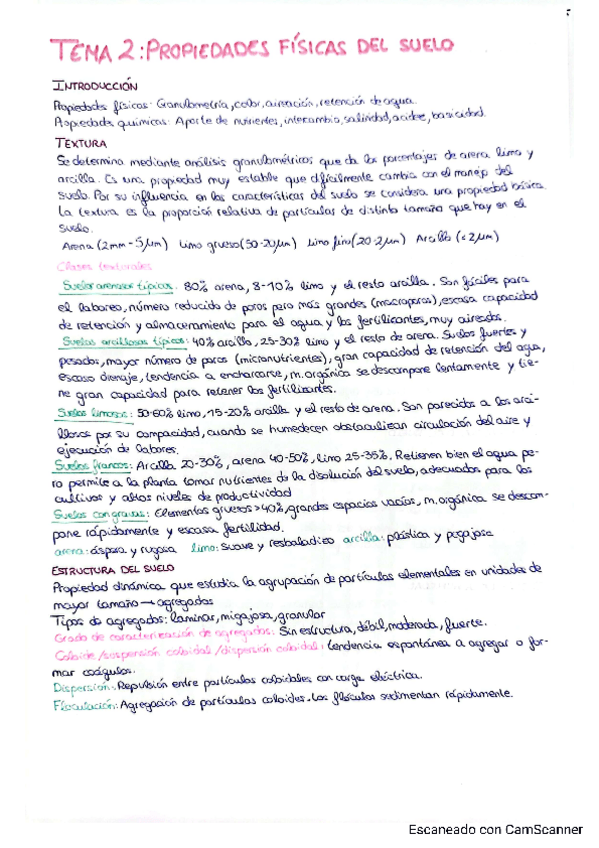 TEMA 2: PROPIEDADES FÍSICAS DEL SUELO
INTRODUCCIÓN
Propiedades físicas: Granulometría, color, aireación, retención de agua.
Propiedades químicas: Aporte de nutrientes, intercambio, salinidad, acidez, basicidad.
TEXTURA
Se determina mediante análisis granulométricos que da los porcentajes de arena limo y
arcilla. Es una propiedad muy estable que difícilmente cambia con el manejo del
suelo. Por su influencia en las características del suelo se considera una propiedad básica.
La textura es la proporción relativa de partículas de distinto tamaño que hay en el
suelo.
Arena (2mm-5μm) Limo grueso (50-20μm) Limo fino (20-2μm) Arcilla (<2μm)
Clases texturales
Suelos arenosos típicos: 80% arena, 8-10% limo y el resto arcilla. Son fáciles para
el laboreo, número reducido de poros pero más grandes (macroporos), escasa capacidad
de retención y almacenamiento para el agua y los fertilizantes, muy aireados.
Suelos arcillosos típicos: 40% arcilla, 25-30% limo y el resto de arena. Suelos fuertes y
pesados, mayor número de poros (micronutrientes), gran capacidad de retención del agua,
escaso drenaje, tendencia a encharcarse, m. orgánica se descompone lentamente y tie-
ne gran capacidad para retener los fertilizantes.
Suelos limosos: 50-60% limo, 15-20% arcilla y el resto de arena. Son parecidos a los arci-
llosos por su compacidad, cuando se humedecen obstaculizan circulación del aire y
ejecución de labores.
Suelos francos: Arcilla 20-30%, arena 40-50%, limo 25-35%. Retienen bien el agua pe-
ro permite a la planta tomar nutrientes de la disolución del suelo, adecuados para los
cultivos y altos niveles de productividad
Suelos con gravas: Elementos gruesos >40%, grandes espacios vacíos, m. orgánica se descom-
pone rápidamente y escasa fertilidad.
arena: áspera y rugosa limo: suave y resbaladizo arcilla: plástica y pegajosa
ESTRUCTURA DEL SUELO
Propiedad dinámica que estudia la agrupación de partículas elementales en unidades de
mayor tamaño → agregados
Tipos de agregados: laminar, migajosa, granular
Grado de caracterización de agregados: Sin estructura, débil, moderada, fuerte.
Coloide/suspensión coloidal/dispersión coloidal: tendencia espontánea a agregar o for-
mar coágulos.
Dispersión: Repulsión entre partículas coloidales con carga eléctrica.
Floculación: Agregación de partículas coloides. Los flóculos sedimentan rápidamente.
Escaneado con CamScanner